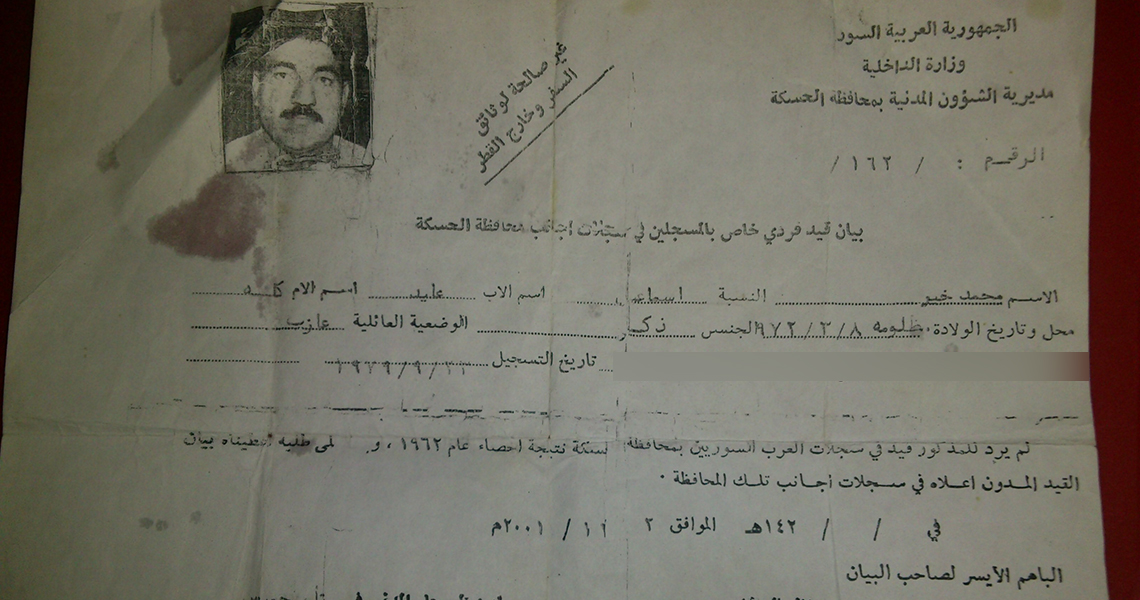 الجمهورية العربية السور
وزارة الداخلية
مديرية الشؤون المدنية بمحافظة الحسكة
الرقم : / ١٦٢ /
غير صالحة لوثائق
السفر وخارج القطر
بيان قيد فردي خاص بالمسجلين في سجلات اجانب محافظة الحسكة
الاسم محمد خير النسبة اسماعيل اسم الاب عايد اسم الام
محل وتاريخ الولادة ٩٧٢/٣/٨ الجنس ذكر الوضعية العائلية عازب
تاريخ التسجيل
لم يرد للمذكور قيد في سجلات العرب السوريين بمحافظة نتيجة احصاء عام ١٩٦٢ ، و طلبه اعطيناه بيان
القيد المدون اعلاه في سجلات أجانب تلك المحافظة ٠
في / / ١٤٢هـ الموافق ٢ ١١ / ٢٠٠١م
الباهم الآيسر لصاحب البيان